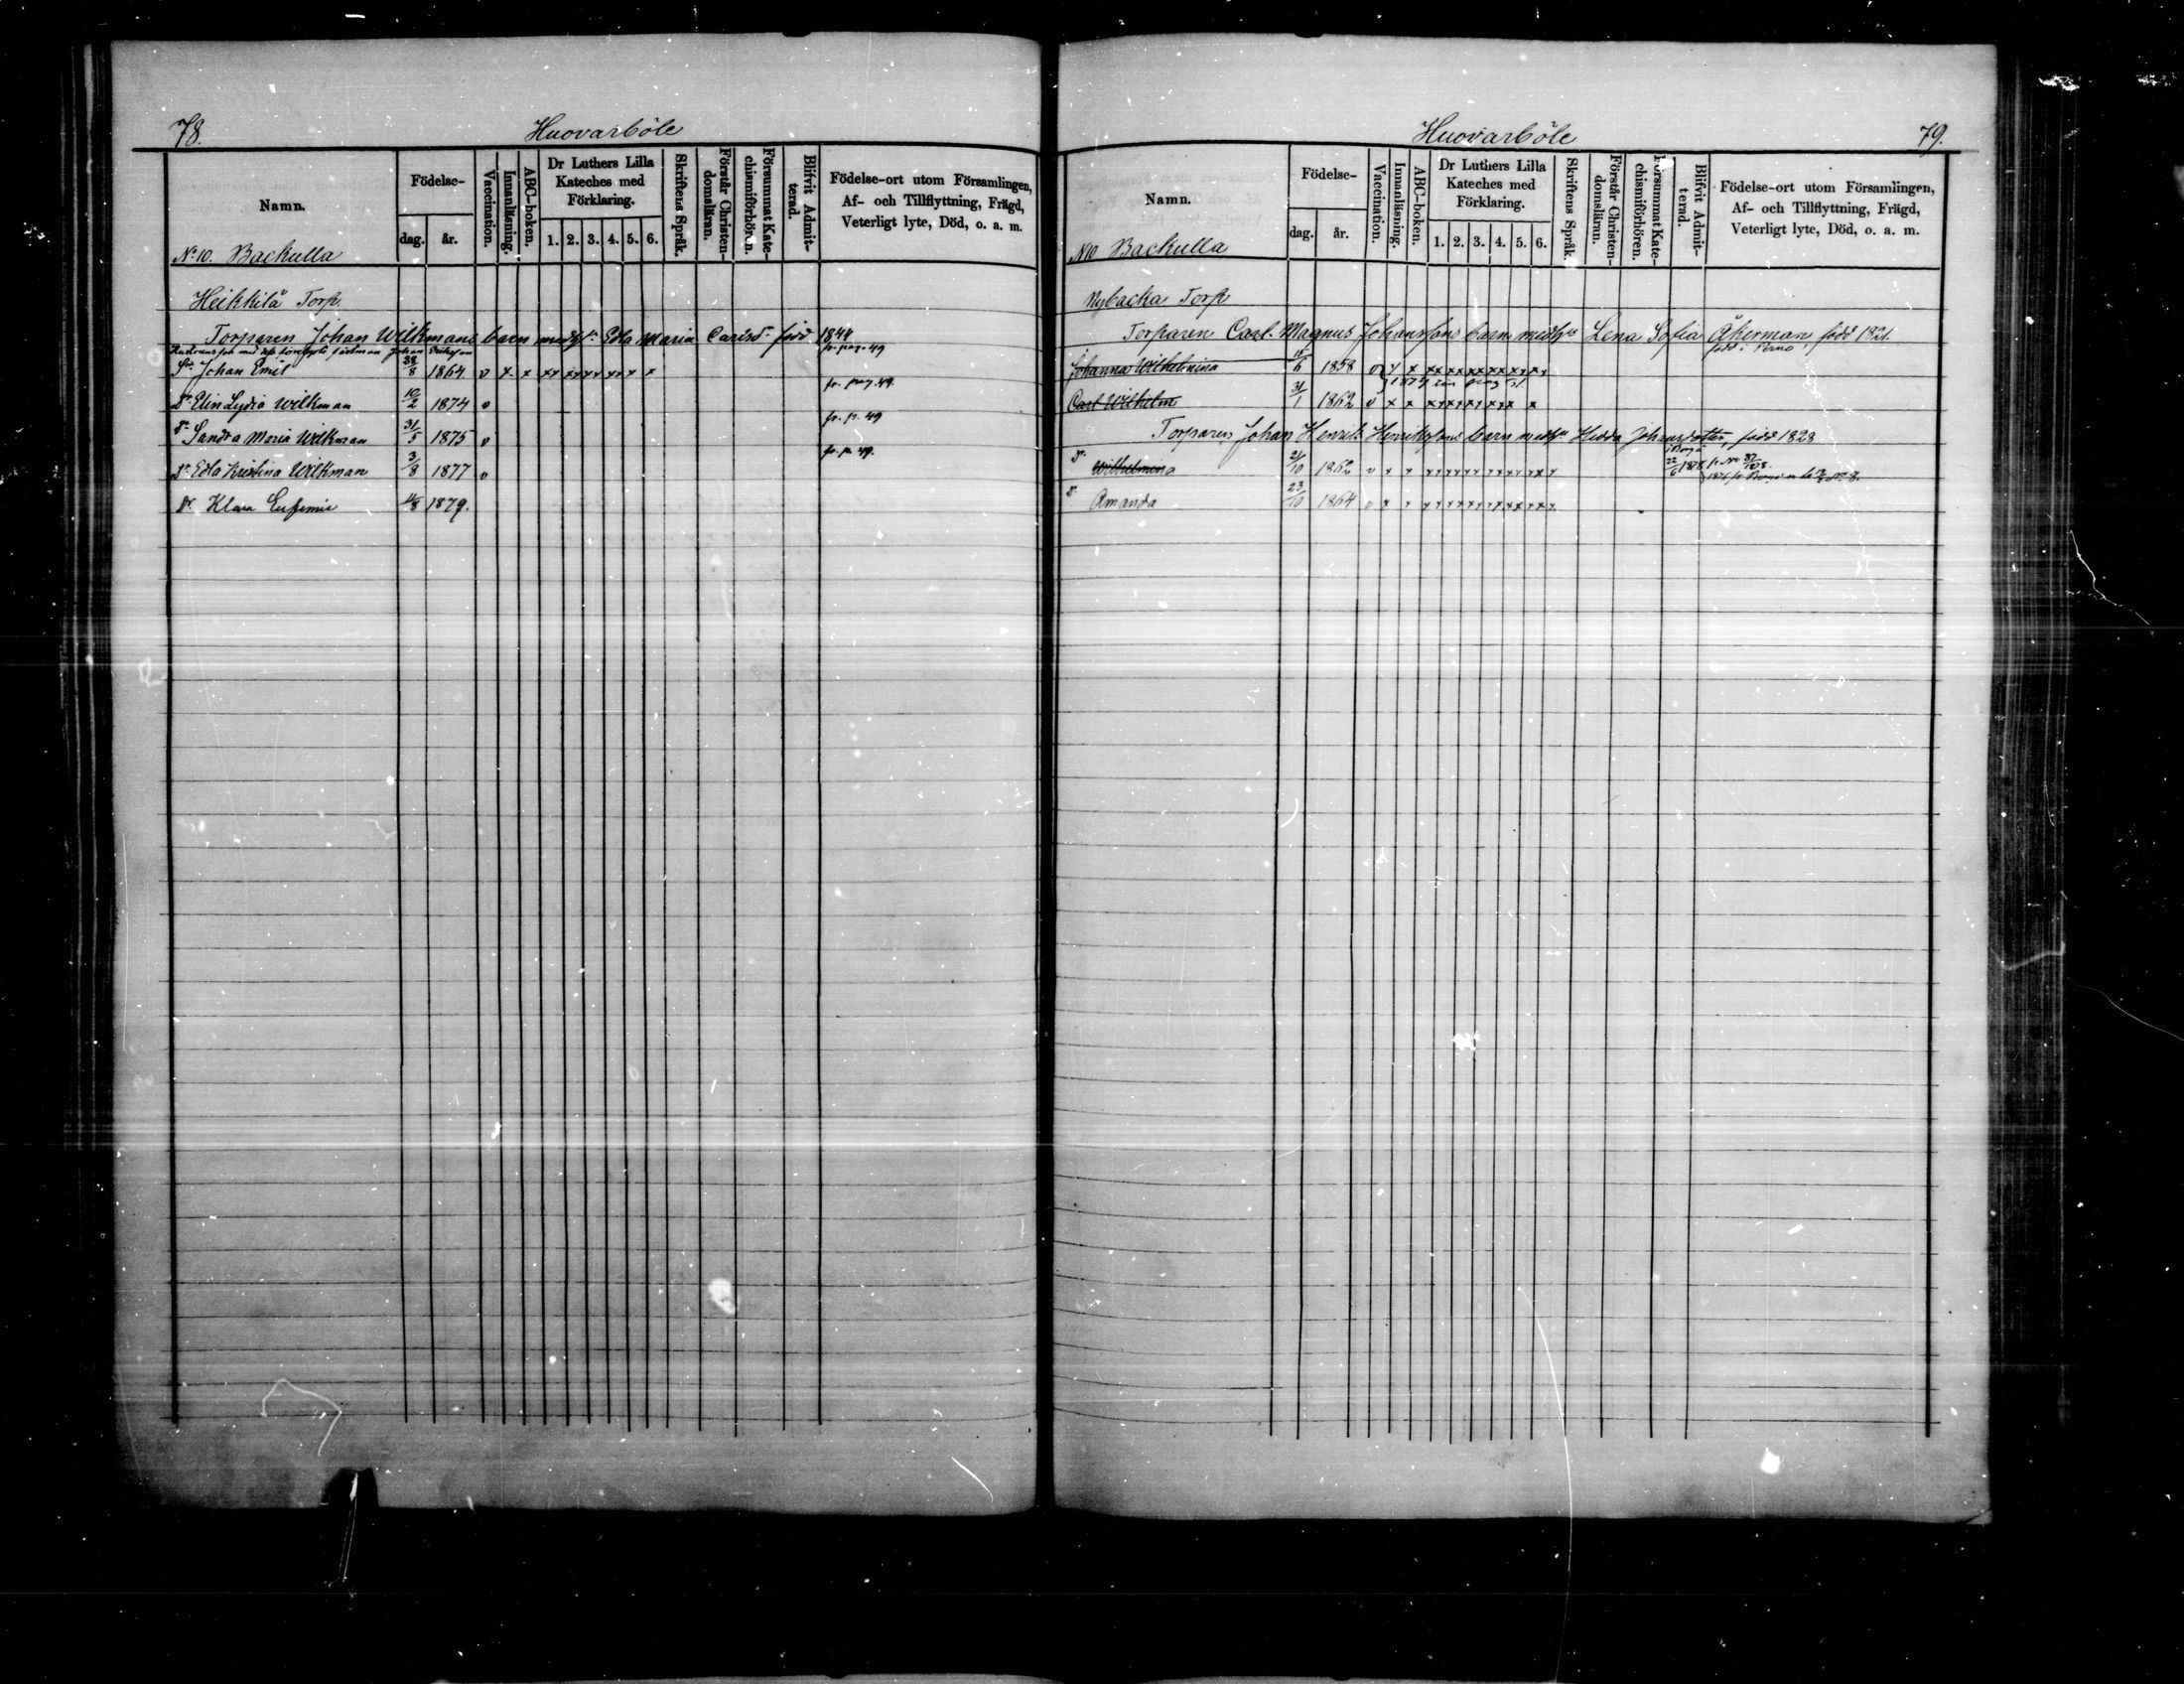 78.
Huovarböle
Namn.
Födelse-
dag.
år.
Vaccination.
Innanläsning.
ABC-boken.
Dr Luthers Lilla
Kateches med
Förklaring.
1. 2. 3. 4. 5. 6.
Skriftens Språk.
Förstår Christen-
domsläran.
Försummat Kate-
chismiförhören.
Blifvit Admit-
terad.
Födelse-ort utom Församlingen,
Af- och Tillflyttning, Frägd,
Veterligt lyte, Död, o. a. m.
No 10. Backulla
Heikkilä Torp.
Torparen Johan Wilkmans barn med Edla Maria född 1844
Johan
fr. pag. 49
Johan Emil 28/8 1864 v x x xx xx xx xx x x
fr. pag. 49.
Dr Elin Lydia Wilkman 10/2 1874 v
fr. p. 49
dr Sandra Maria Wilkman 31/5 1875 v
fr. p. 49.
Dr Edla Kristina Wilkman 3/8 1877 v
Dr Klara Eufemia /8 1879.
Huovarböle
79.
Namn.
Födelse-
dag.
år.
Vaccination.
Innanläsning.
ABC-boken.
Dr Luthers Lilla
Kateches med
Förklaring.
1. 2. 3. 4. 5. 6.
Skriftens Språk.
Förstår Christen-
domsläran.
Försummat Kate-
chismiförhören.
Blifvit Admit-
terad.
Födelse-ort utom Församlingen,
Af- och Tillflyttning, Frägd,
Veterligt lyte, Död, o. a. m.
N10 Backulla
Nybacka Torp
Torparen Carl Magnus Johanssons barn med Lena Sofia Åkerman, född 1821.
född i Perno
Johanna Wilhelmina /6 1858 v x x xx xx xx xx xx xx
1874 pag
Carl Wilhelm 31/1 1862 v x x xx xx xx xx x x
Torparen Johan Henrik Henrikssons barn med Hedda Johansdotter, född 1828
dr Wilhelmina 21/10 1862 v x x xx xx xx xx xx xx 22/6 1878
1876
dr Amanda 23/10 1864 v x x xx xx xx xx xx xx